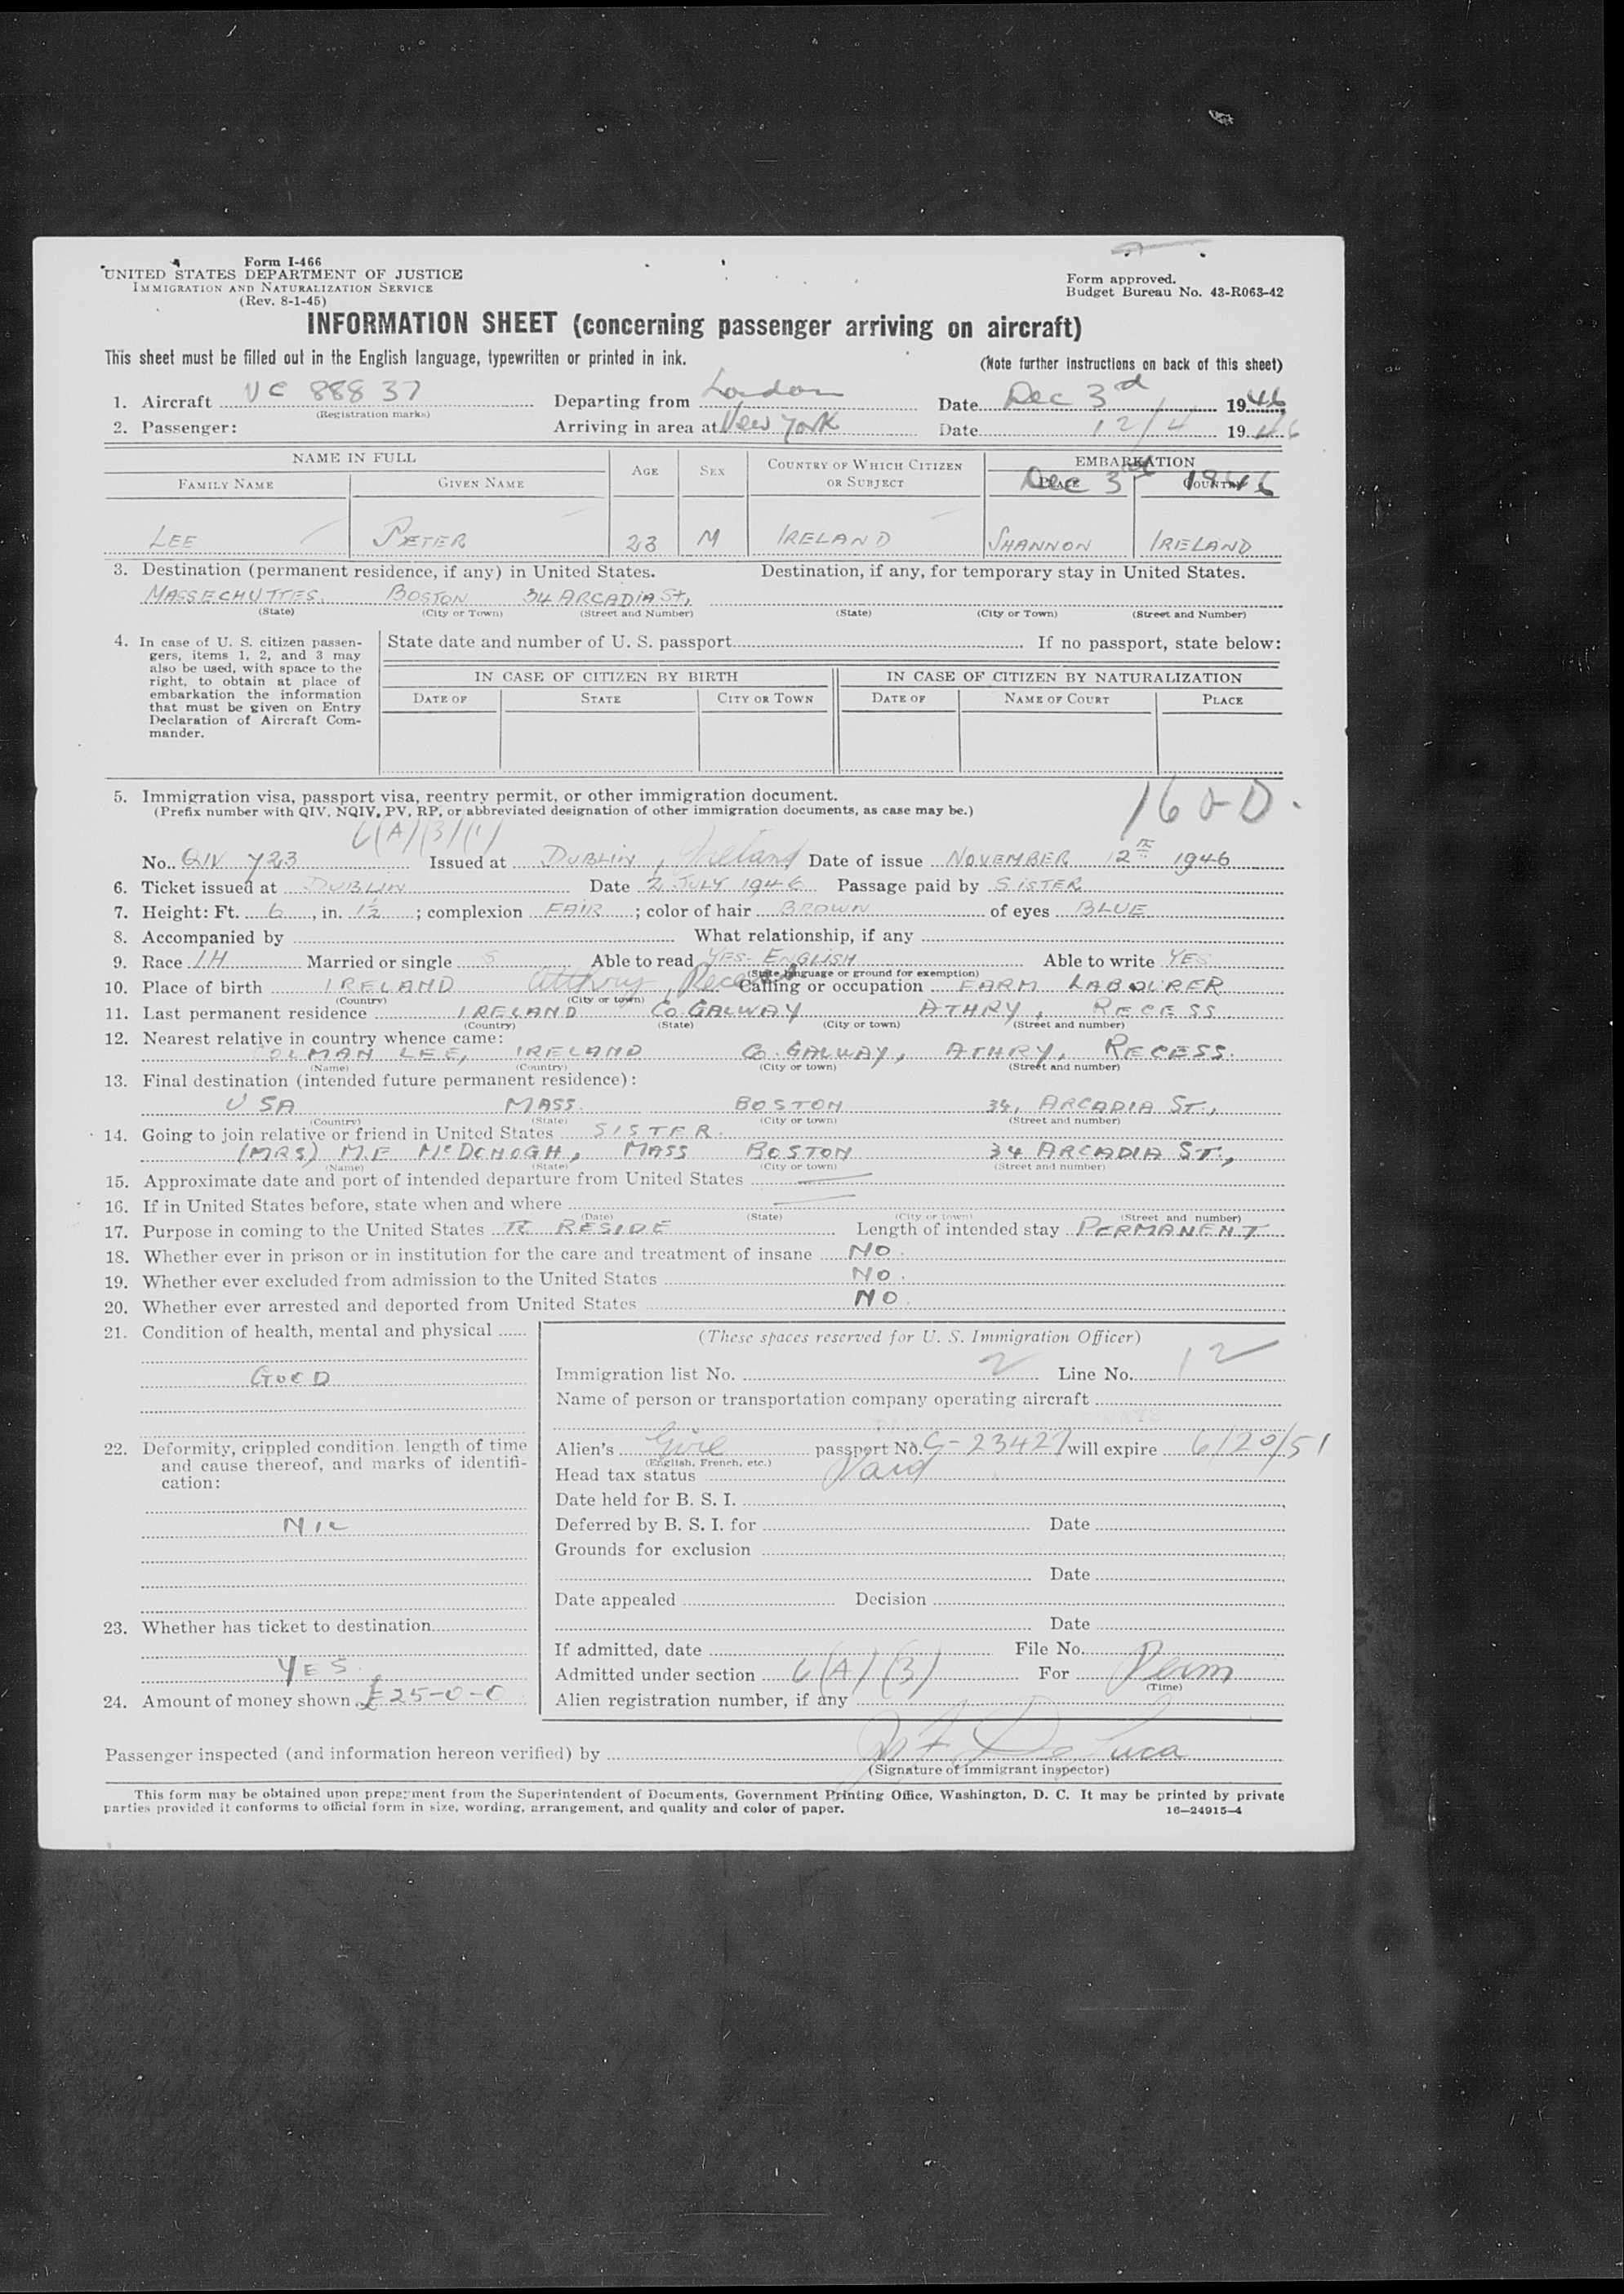 Form I-466
UNITED STATES DEPARTMENT OF JUSTICE
IMMIGRATION AND NATURALIZATION SERVICE
(Rev. 8-1-45)
Form approved.
Budget Bureau No. 43-R063-42
INFORMATION SHEET (concerning passenger arriving on aircraft)
This sheet must be filled out in the English language, typewritten or printed in ink. (Note further instructions on back of this sheet)
1. Aircraft VC 88837 Departing from London Date Dec 3rd 1946
(Registration marks)
2. Passenger: Arriving in area at New York Date 12/4 1946
NAME IN FULL AGE SEX COUNTRY OF WHICH CITIZEN OR SUBJECT EMBARKATION
FAMILY NAME GIVEN NAME PLACE COUNTRY
Dec 3rd 1946
LEE PETER 23 M IRELAND SHANNON IRELAND
3. Destination (permanent residence, if any) in United States. Destination, if any, for temporary stay in United States.
MASSECHUTTES. BOSTON 34 ARCADIA St,
(State) (City or Town) (Street and Number) (State) (City or Town) (Street and Number)
4. In case of U. S. citizen passengers, items 1, 2, and 3 may also be used, with space to the right, to obtain at place of embarkation the information that must be given on Entry Declaration of Aircraft Commander.
State date and number of U. S. passport If no passport, state below:
IN CASE OF CITIZEN BY BIRTH IN CASE OF CITIZEN BY NATURALIZATION
DATE OF STATE CITY OR TOWN DATE OF NAME OF COURT PLACE
5. Immigration visa, passport visa, reentry permit, or other immigration document.
(Prefix number with QIV, NQIV, PV, RP, or abbreviated designation of other immigration documents, as case may be.)
6(A)(3)(1)
No. QIV 723 Issued at DUBLIN, Ireland Date of issue NOVEMBER 12TH 1946
6. Ticket issued at DUBLIN Date 2 JULY 1946 Passage paid by SISTER
7. Height: Ft. 6, in. 1½; complexion FAIR; color of hair BROWN of eyes BLUE
8. Accompanied by What relationship, if any
9. Race IH Married or single S Able to read YES- ENGLISH Able to write YES
(State language or ground for exemption)
10. Place of birth IRELAND Atthry, Recess Calling or occupation FARM LABOURER
(Country) (City or town)
11. Last permanent residence IRELAND Co. GALWAY ATHRY, RECESS
(Country) (State) (City or town) (Street and number)
12. Nearest relative in country whence came:
COLMAN LEE, IRELAND Co. GALWAY, ATHRY, RECESS.
(Name) (Country) (City or town) (Street and number)
13. Final destination (intended future permanent residence):
USA MASS. BOSTON 34, ARCADIA ST.,
(Country) (State) (City or town) (Street and number)
14. Going to join relative or friend in United States SISTER.
(MRS) M.F McDONOGH, MASS BOSTON 34 ARCADIA ST.,
(Name) (State) (City or town) (Street and number)
15. Approximate date and port of intended departure from United States —
16. If in United States before, state when and where —
(Date) (State) (City or town) (Street and number)
17. Purpose in coming to the United States TO RESIDE Length of intended stay PERMANENT
18. Whether ever in prison or in institution for the care and treatment of insane NO.
19. Whether ever excluded from admission to the United States NO.
20. Whether ever arrested and deported from United States NO.
21. Condition of health, mental and physical
GOOD
22. Deformity, crippled condition, length of time and cause thereof, and marks of identification:
NIL
23. Whether has ticket to destination
YES
24. Amount of money shown £25-0-0
(These spaces reserved for U. S. Immigration Officer)
Immigration list No. 2 Line No. 12
Name of person or transportation company operating aircraft
Alien's Eire passport No. C-23427 will expire 6/20/51
(English, French, etc.)
Head tax status Paid
Date held for B. S. I.
Deferred by B. S. I. for Date
Grounds for exclusion
Date
Date appealed Decision
Date
If admitted, date File No.
Admitted under section 6(A)(3) For Perm
(Time)
Alien registration number, if any
Passenger inspected (and information hereon verified) by De Luca
(Signature of immigrant inspector)
This form may be obtained upon prepayment from the Superintendent of Documents, Government Printing Office, Washington, D. C. It may be printed by private
parties provided it conforms to official form in size, wording, arrangement, and quality and color of paper. 16—24915-4